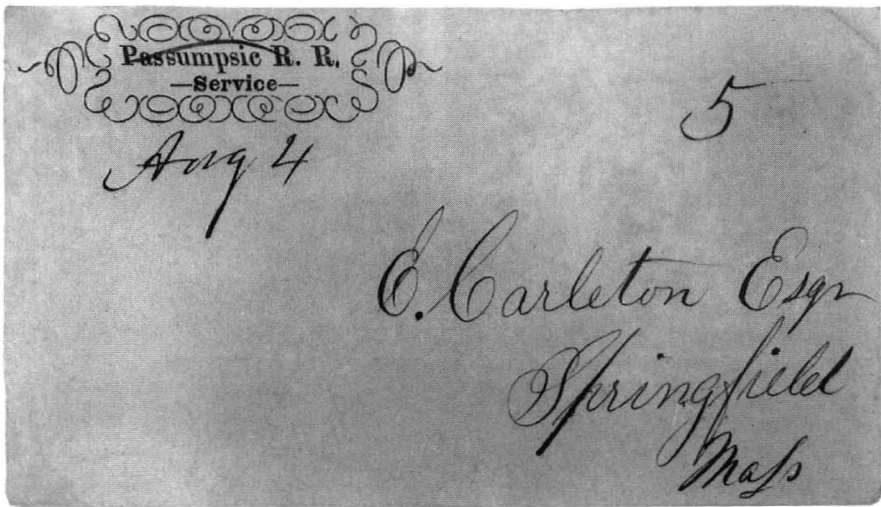 Passumpsic R. R.
—Service—
Aug 4
5
E. Carleton Esqr
Springfield
Maſs